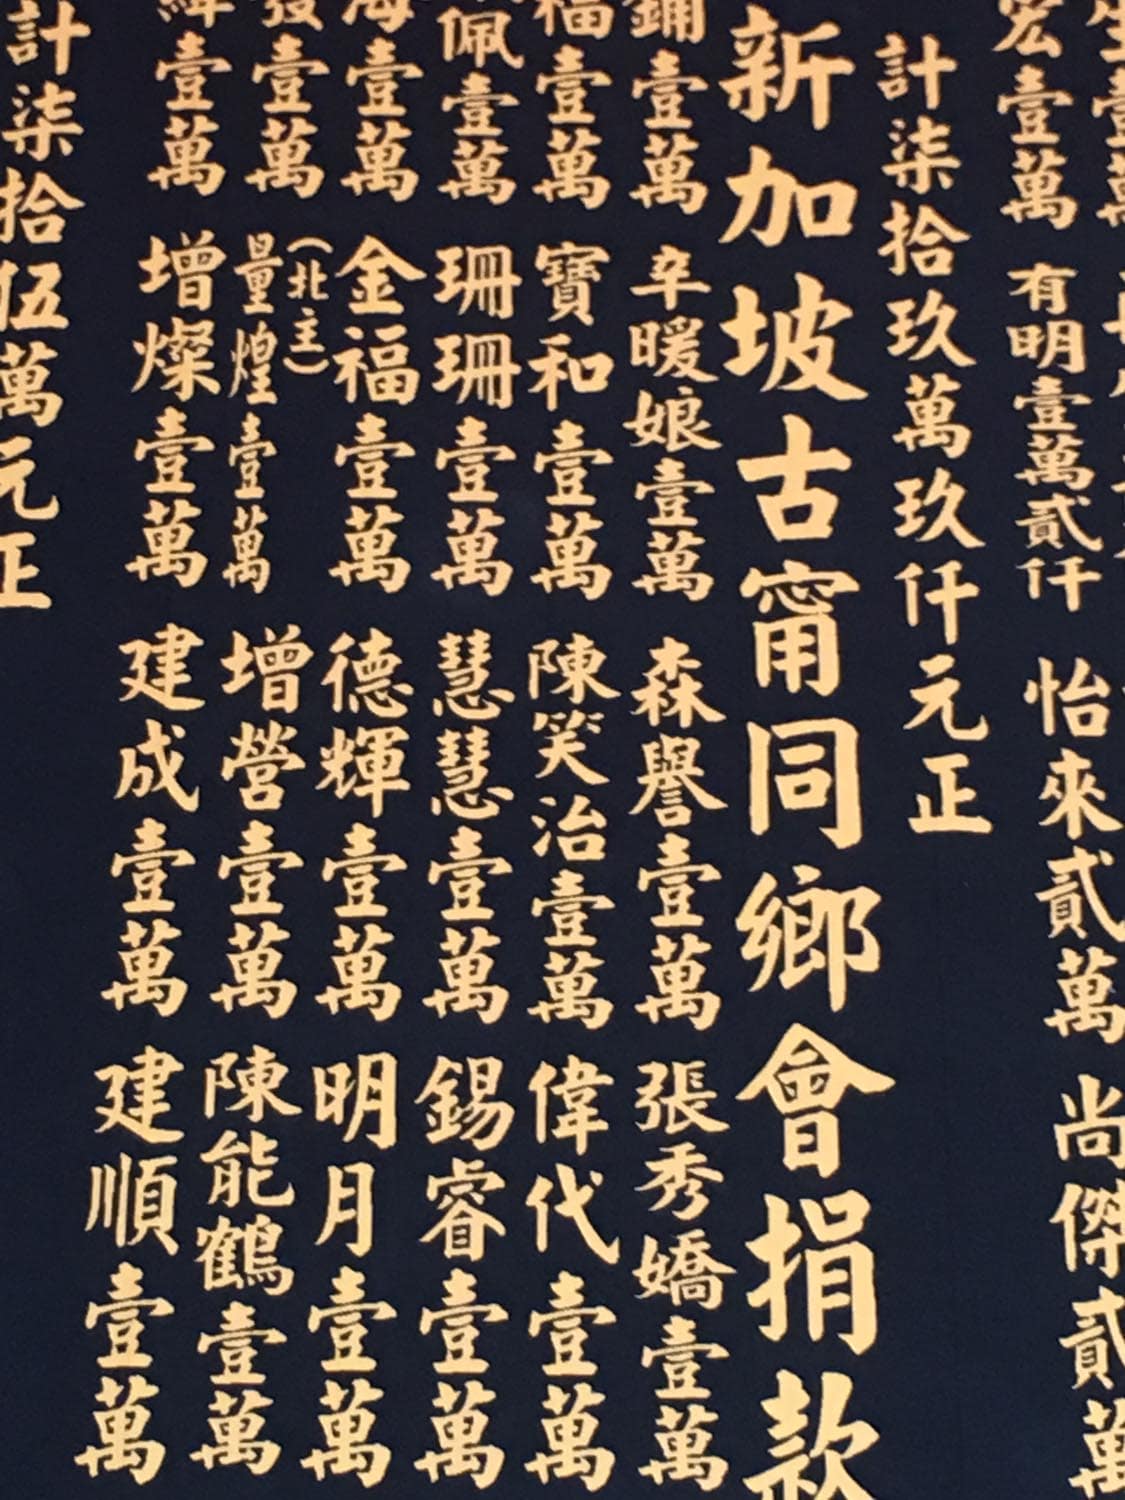 宏壹萬 有明壹萬貳仟 怡來貳萬 尚傑貳萬
計柒拾玖萬玖仟元正
新加坡古甯同鄉會捐款
鋪壹萬 辛暖娘壹萬 森譽壹萬 張秀嬌壹萬
福壹萬 寶和壹萬 陳笑治壹萬 偉代壹萬
佩壹萬 珊珊壹萬 慧慧壹萬 錫睿壹萬
海壹萬 金福壹萬 德輝壹萬 明月壹萬
(北主)
發壹萬 量煌壹萬 增營壹萬 陳能鶴壹萬
緯壹萬 增燦壹萬 建成壹萬 建順壹萬
計柒拾伍萬元正